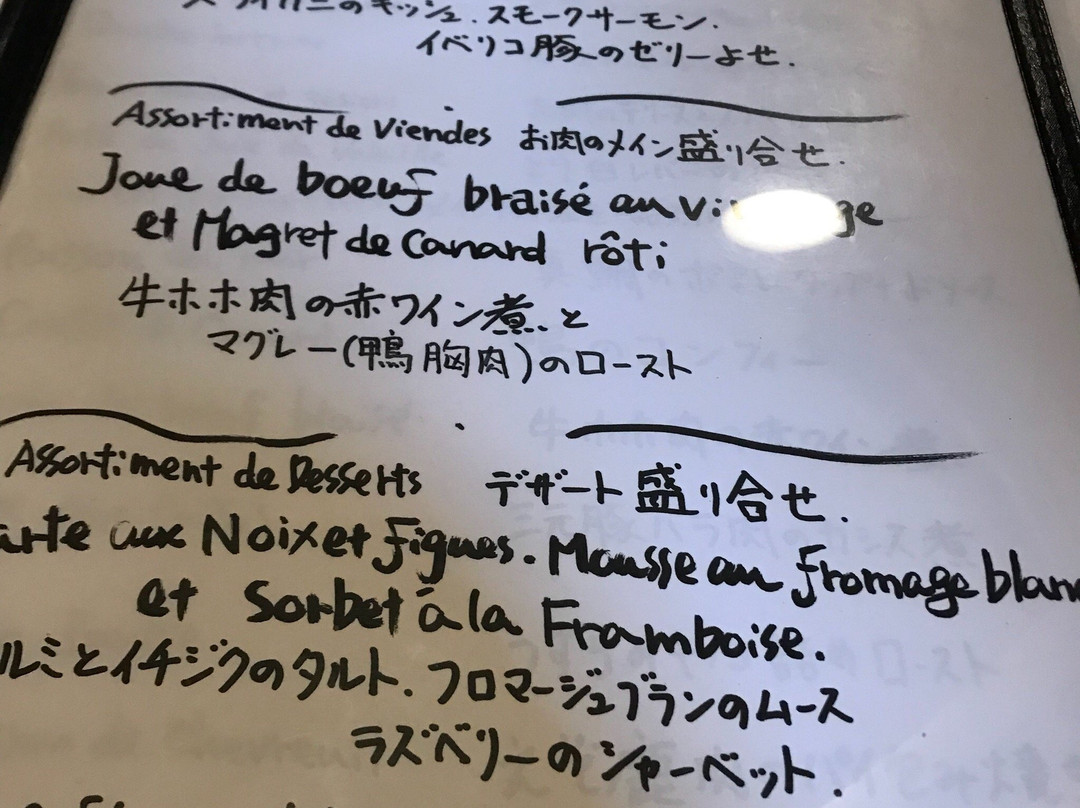 のキッシュ. スモークサーモン.
イベリコ豚のゼリーよせ.
Assortiment de Viendes お肉のメイン盛り合せ.
Joue de boeuf braisé au
et Magret de Canard rôti
牛ホホ肉の赤ワイン煮、と
マグレー(鴨胸肉)のロースト
Assortiment de Desserts デザート盛り合せ.
aux Noix et figues. Mousse au fromage blan
et Sorbet à la Framboise.
ルミとイチジクのタルト. フロマージュブランのムース
ラズベリーのシャーベット.